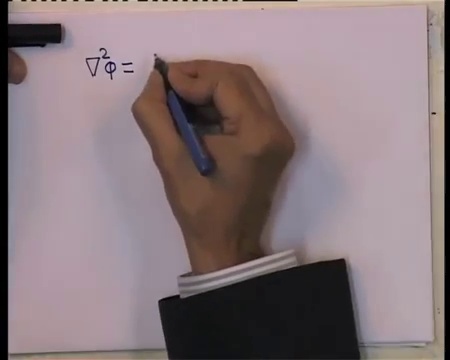 ∇²φ =